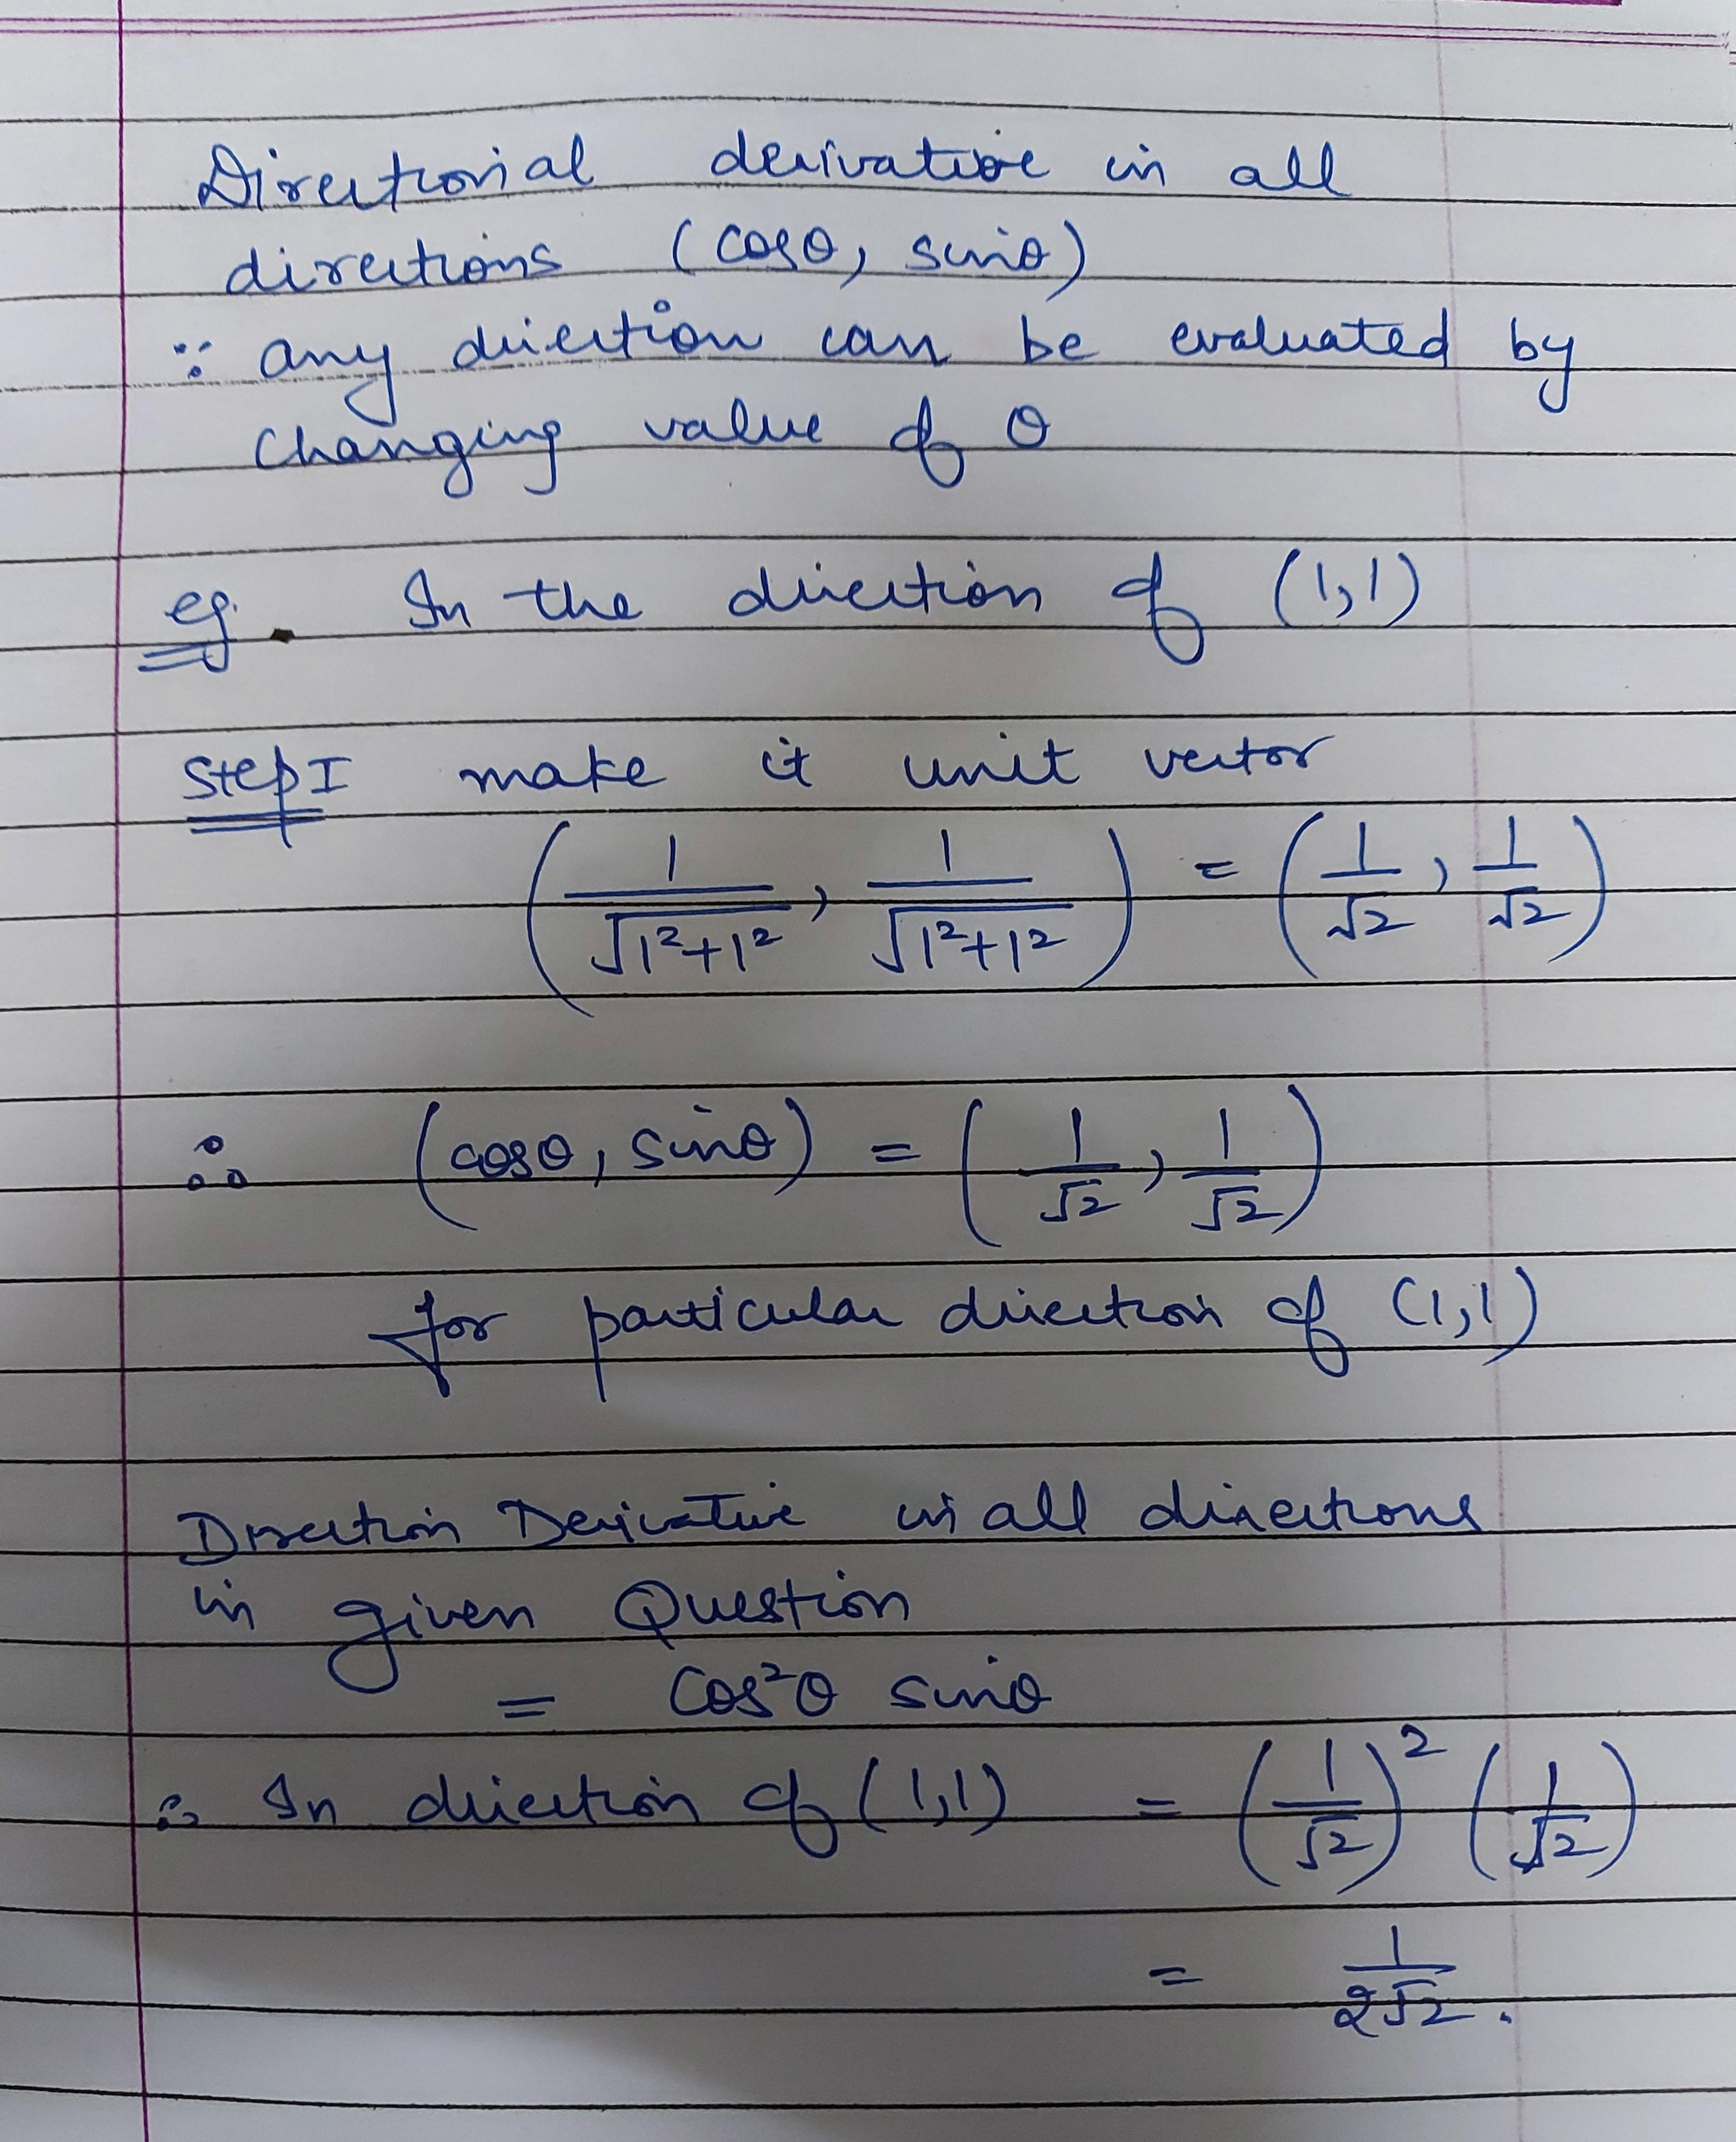 Directional derivative in all
directions (cosθ, sinθ)
∵ any direction can be evaluated by
changing value of θ
eg. In the direction of (1,1)
Step I make it unit vector
(1/√(1²+1²), 1/√(1²+1²)) = (1/√2, 1/√2)
∴ (cosθ, sinθ) = (1/√2, 1/√2)
for particular direction of (1,1)
Direction Derivative in all directions
in given Question
= Cos²θ sinθ
∴ In direction of (1,1) = (1/√2)² (1/√2)
= 1/2√2.